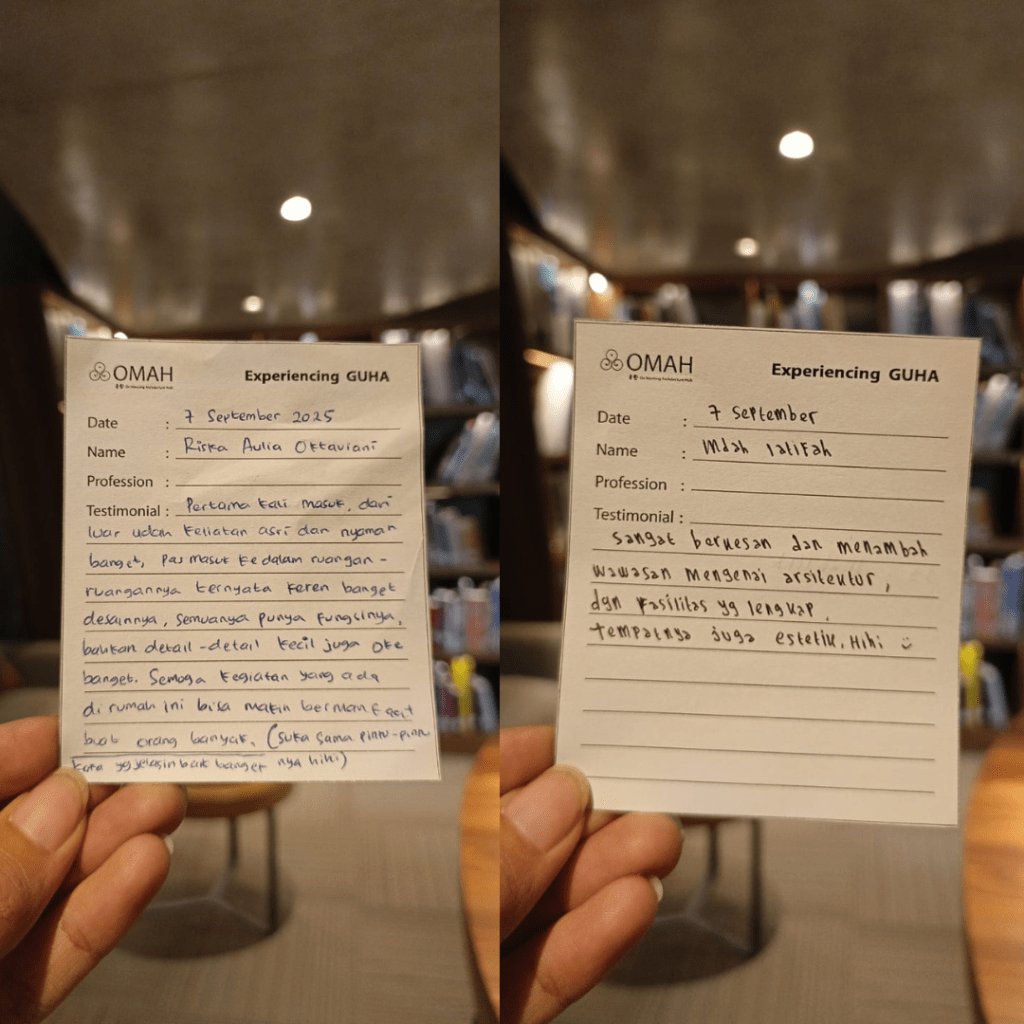 OMAH
Experiencing GUHA
Date : 7 September 2025
Name : Riska Aulia Oktaviani
Profession :
Testimonial : Pertama kali masuk, dari
luar udah keliatan asri dan nyaman
banget, pas masuk ke dalam ruangan-
ruangannya ternyata keren banget
desainnya, semuanya punya fungsinya,
bahkan detail-detail kecil juga oke
banget. Semoga kegiatan yang ada
di rumah ini bisa makin bermanfaat
buat orang banyak. (suka sama pintu-pintu
kata yg jelasin baik banget nya hihi)
OMAH
Experiencing GUHA
Date : 7 September
Name : indah latifah
Profession :
Testimonial :
sangat berkesan dan menambah
wawasan mengenai arsitektur,
dgn fasilitas yg lengkap.
tempatnya juga estetik. Hihi